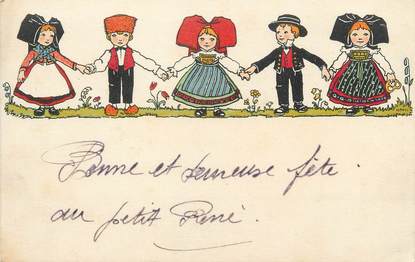 Bonne et heureuse fête.
au petit René.